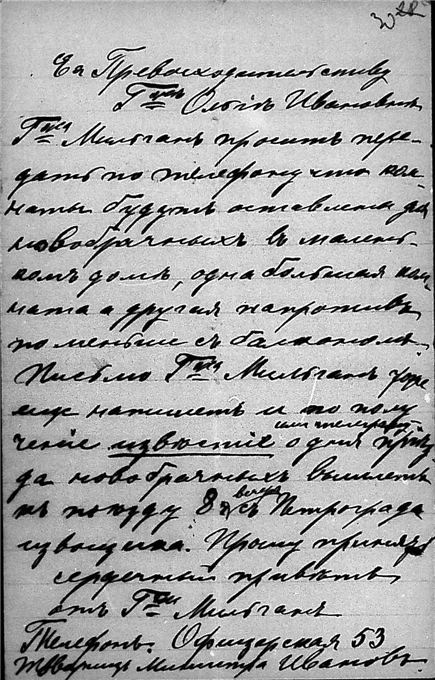 Ея Превосходительству
Г-жѣ Ольгѣ Ивановнѣ
Г-жа Мильганъ проситъ пере-
дать по телефону что ком-
наты будутъ оставлены для
новобрачныхъ въ малень-
комъ домѣ, одна большая ком-
ната а другая напротивъ
поменьше съ балкономъ.
Письмо Г-жа Мильганъ
еще напишетъ и по полу
или телеграм.
ченіе извѣстіе о днѣ приѣз-
да новобрачныхъ вышлетъ
къ поѣзду 8 ч вечера съ Петрограда
извощика. Прошу принять
сердечный привѣтъ
отъ Г-жи Мильганъ
Телефонъ. Офицерская 53
Министра Ивановъ.